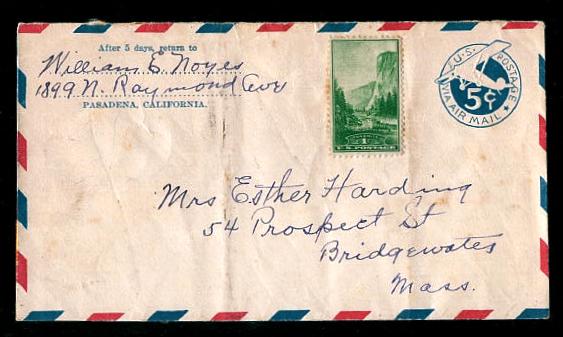 After 5 days, return to
William E. Noyes
1899 N. Raymond Ave
PASADENA, CALIFORNIA.
YOSEMITE
1¢ 1¢
U.S. POSTAGE
U.S. POSTAGE
5¢
VIA AIR MAIL
Mrs Esther Harding
54 Prospect St
Bridgewater
Mass.